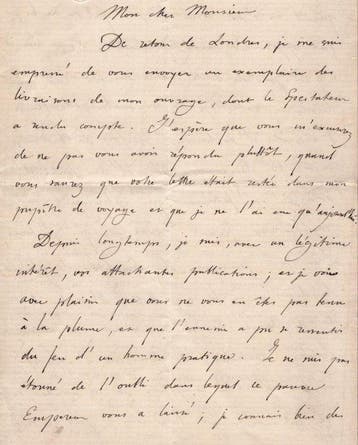 Mon cher Monsieur
De retour de Londres, je me suis
empressé de vous envoyer un exemplaire des
livraisons de mon ouvrage, dont le Spectateur
a rendu compte. J'espère que vous m'excuserez
de ne pas vous avoir répondu pluttôt, quand
vous saurez que votre lettre était restée dans mon
pupître de voyage et que je ne l'ai eue qu'aujourd'hui.
Depuis longtemps, je suis, avec un légitime
intérêt, vos attachantes publications ; et je vois
avec plaisir que vous ne vous en êtes pas tenu
à la plume, et que l'ennemi a pu se ressentir
du feu d'un homme pratique. Je ne suis pas
étonné de l'oubli dans lequel ce pauvre
Empereur vous a laissé ; je connais bien des